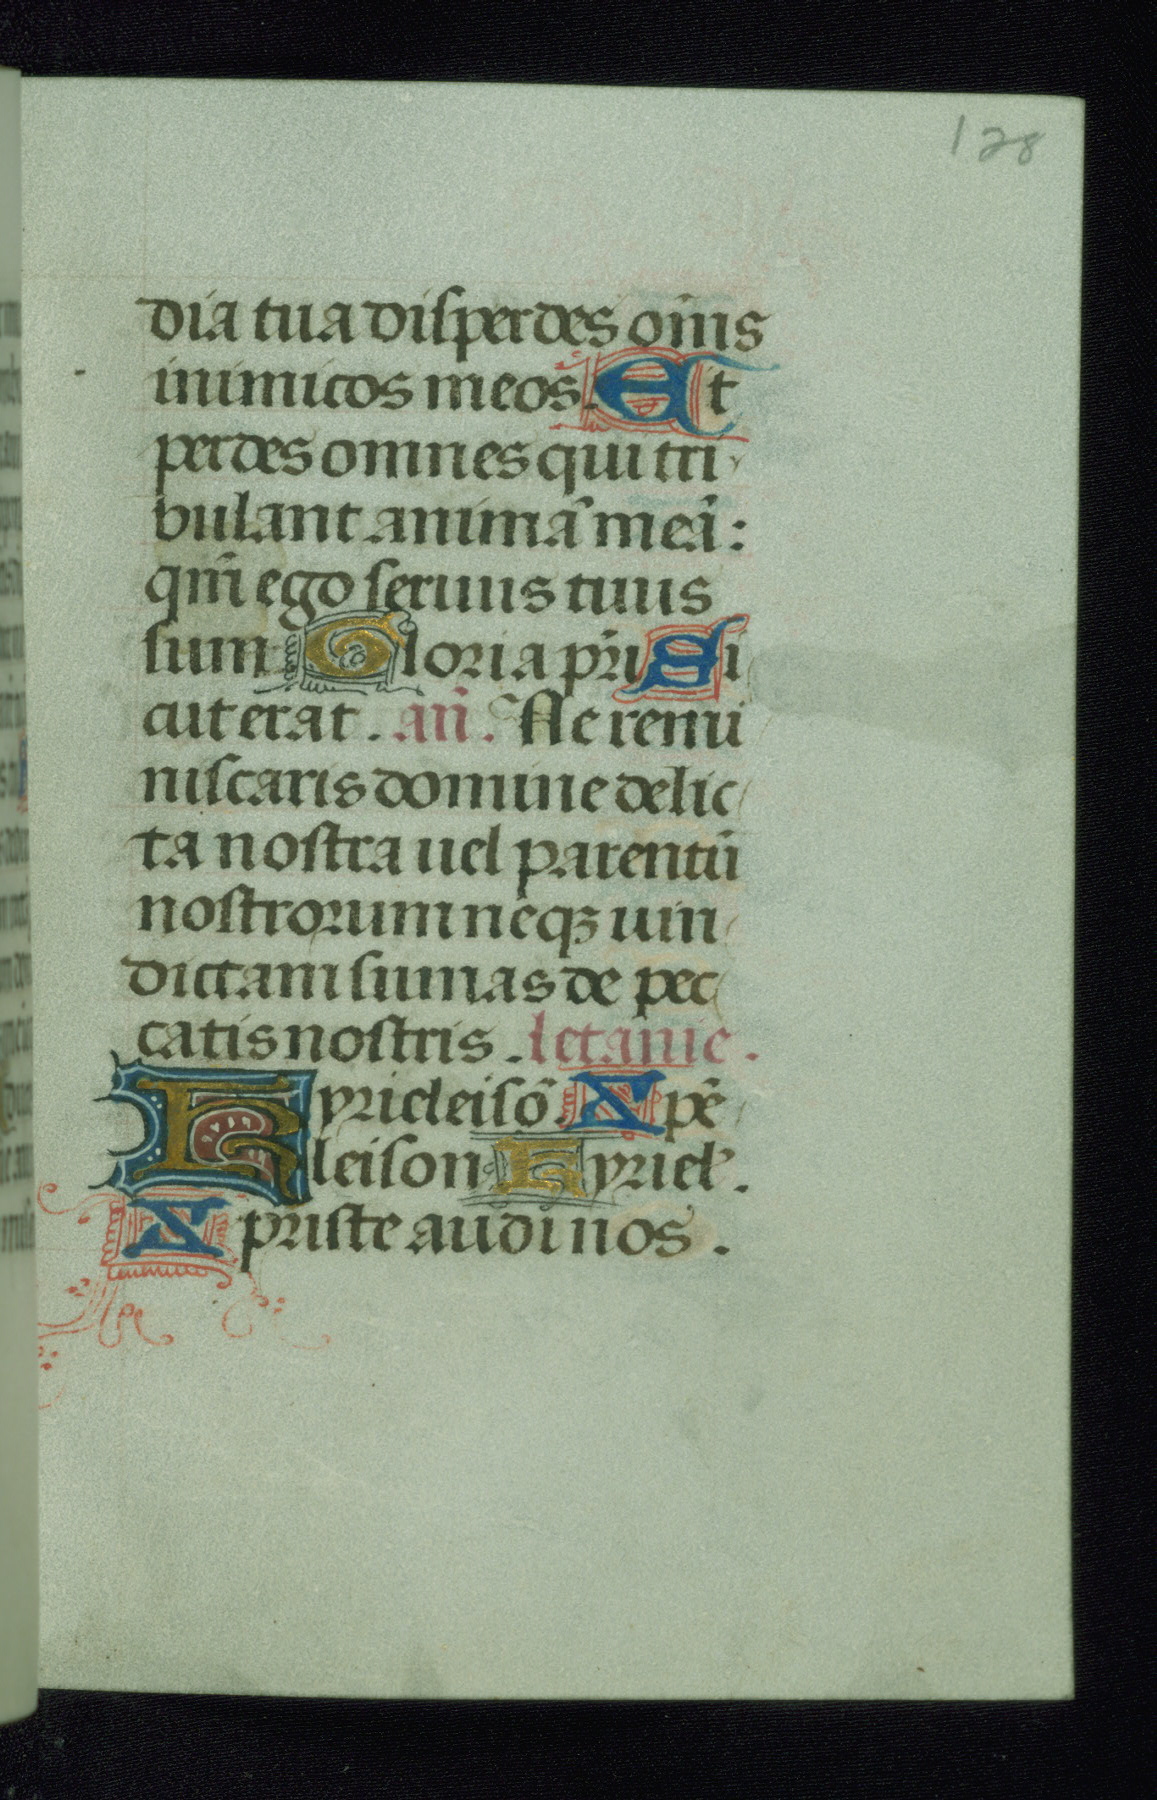 128
dia tua disperdes om̃s
inimicos meos. Et
perdes omnes qui tri
bulant animã meã:
qm̃ ego seruus tuus
sum Gloria pr̃i Si
cut erat. añ. Ne remi
niscaris domine delic
ta nostra uel parentũ
nostrorum neqꝫ uin
dictam sumas de pec
catis nostris. letanie.
Kyrieleisõ. Xpẽ
leison Kyriel'.
Xpriste audi nos.